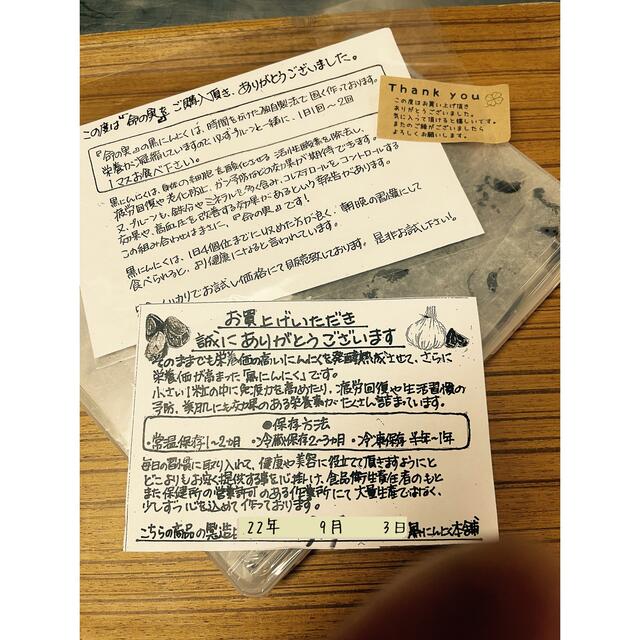 この度は『命の実』をご購入頂き、ありがとうございました。
『命の実』の黒にんにくは、時間を
栄養が凝縮していますので
1日1回〜2回
1マスお食べ下さい。
黒にんにくは、身体の細胞を酸化させる活性酸素を除去し、
疲労回復や老化防止、ガン予防などの効果が期待できます。
又、プルーンも、鉄分やミネラルを多く含み、コレステロールをコントロールする
効果や、高血圧を改善する効果があるという報告があります。
この組み合わせはまさに、『命の実』です！
黒にんにくは、1日4個位までに収めた方が良く、朝晩の習慣にして
食べられると、より健康になると言われています。
お試し価格にて販売致しております。是非お試し下さい。
Thank you
この度はお買い上げ頂き
ありがとうございました。
気に入って頂けると嬉しいです。
またのご縁がございましたら
よろしくお願いします。
お買上げいただき
誠にありがとうございます
そのままでも栄養価の高いにんにくを発酵熟成させて、さらに
栄養価が高まった「黒にんにく」です。
小さい1粒の中に免疫力を高めたり、疲労回復や生活習慣の
予防、美肌にも効果のある栄養素がたくさん詰まっています。
●保存方法
・常温保存1〜2ヶ月 ・冷蔵保存2〜3ヶ月 ・冷凍保存 半年〜1年
毎日の習慣に取り入れて、健康や美容に役立てて頂きますようにと
どこよりもお安く提供する事を心掛け、食品衛生責任者のもと
また保健所の営業許可のある作業所にて大量生産ではなく、
少しずつ心を込めて作っております。
こちらの商品の製造は 22年 9月 3日 黒にんにく本舗